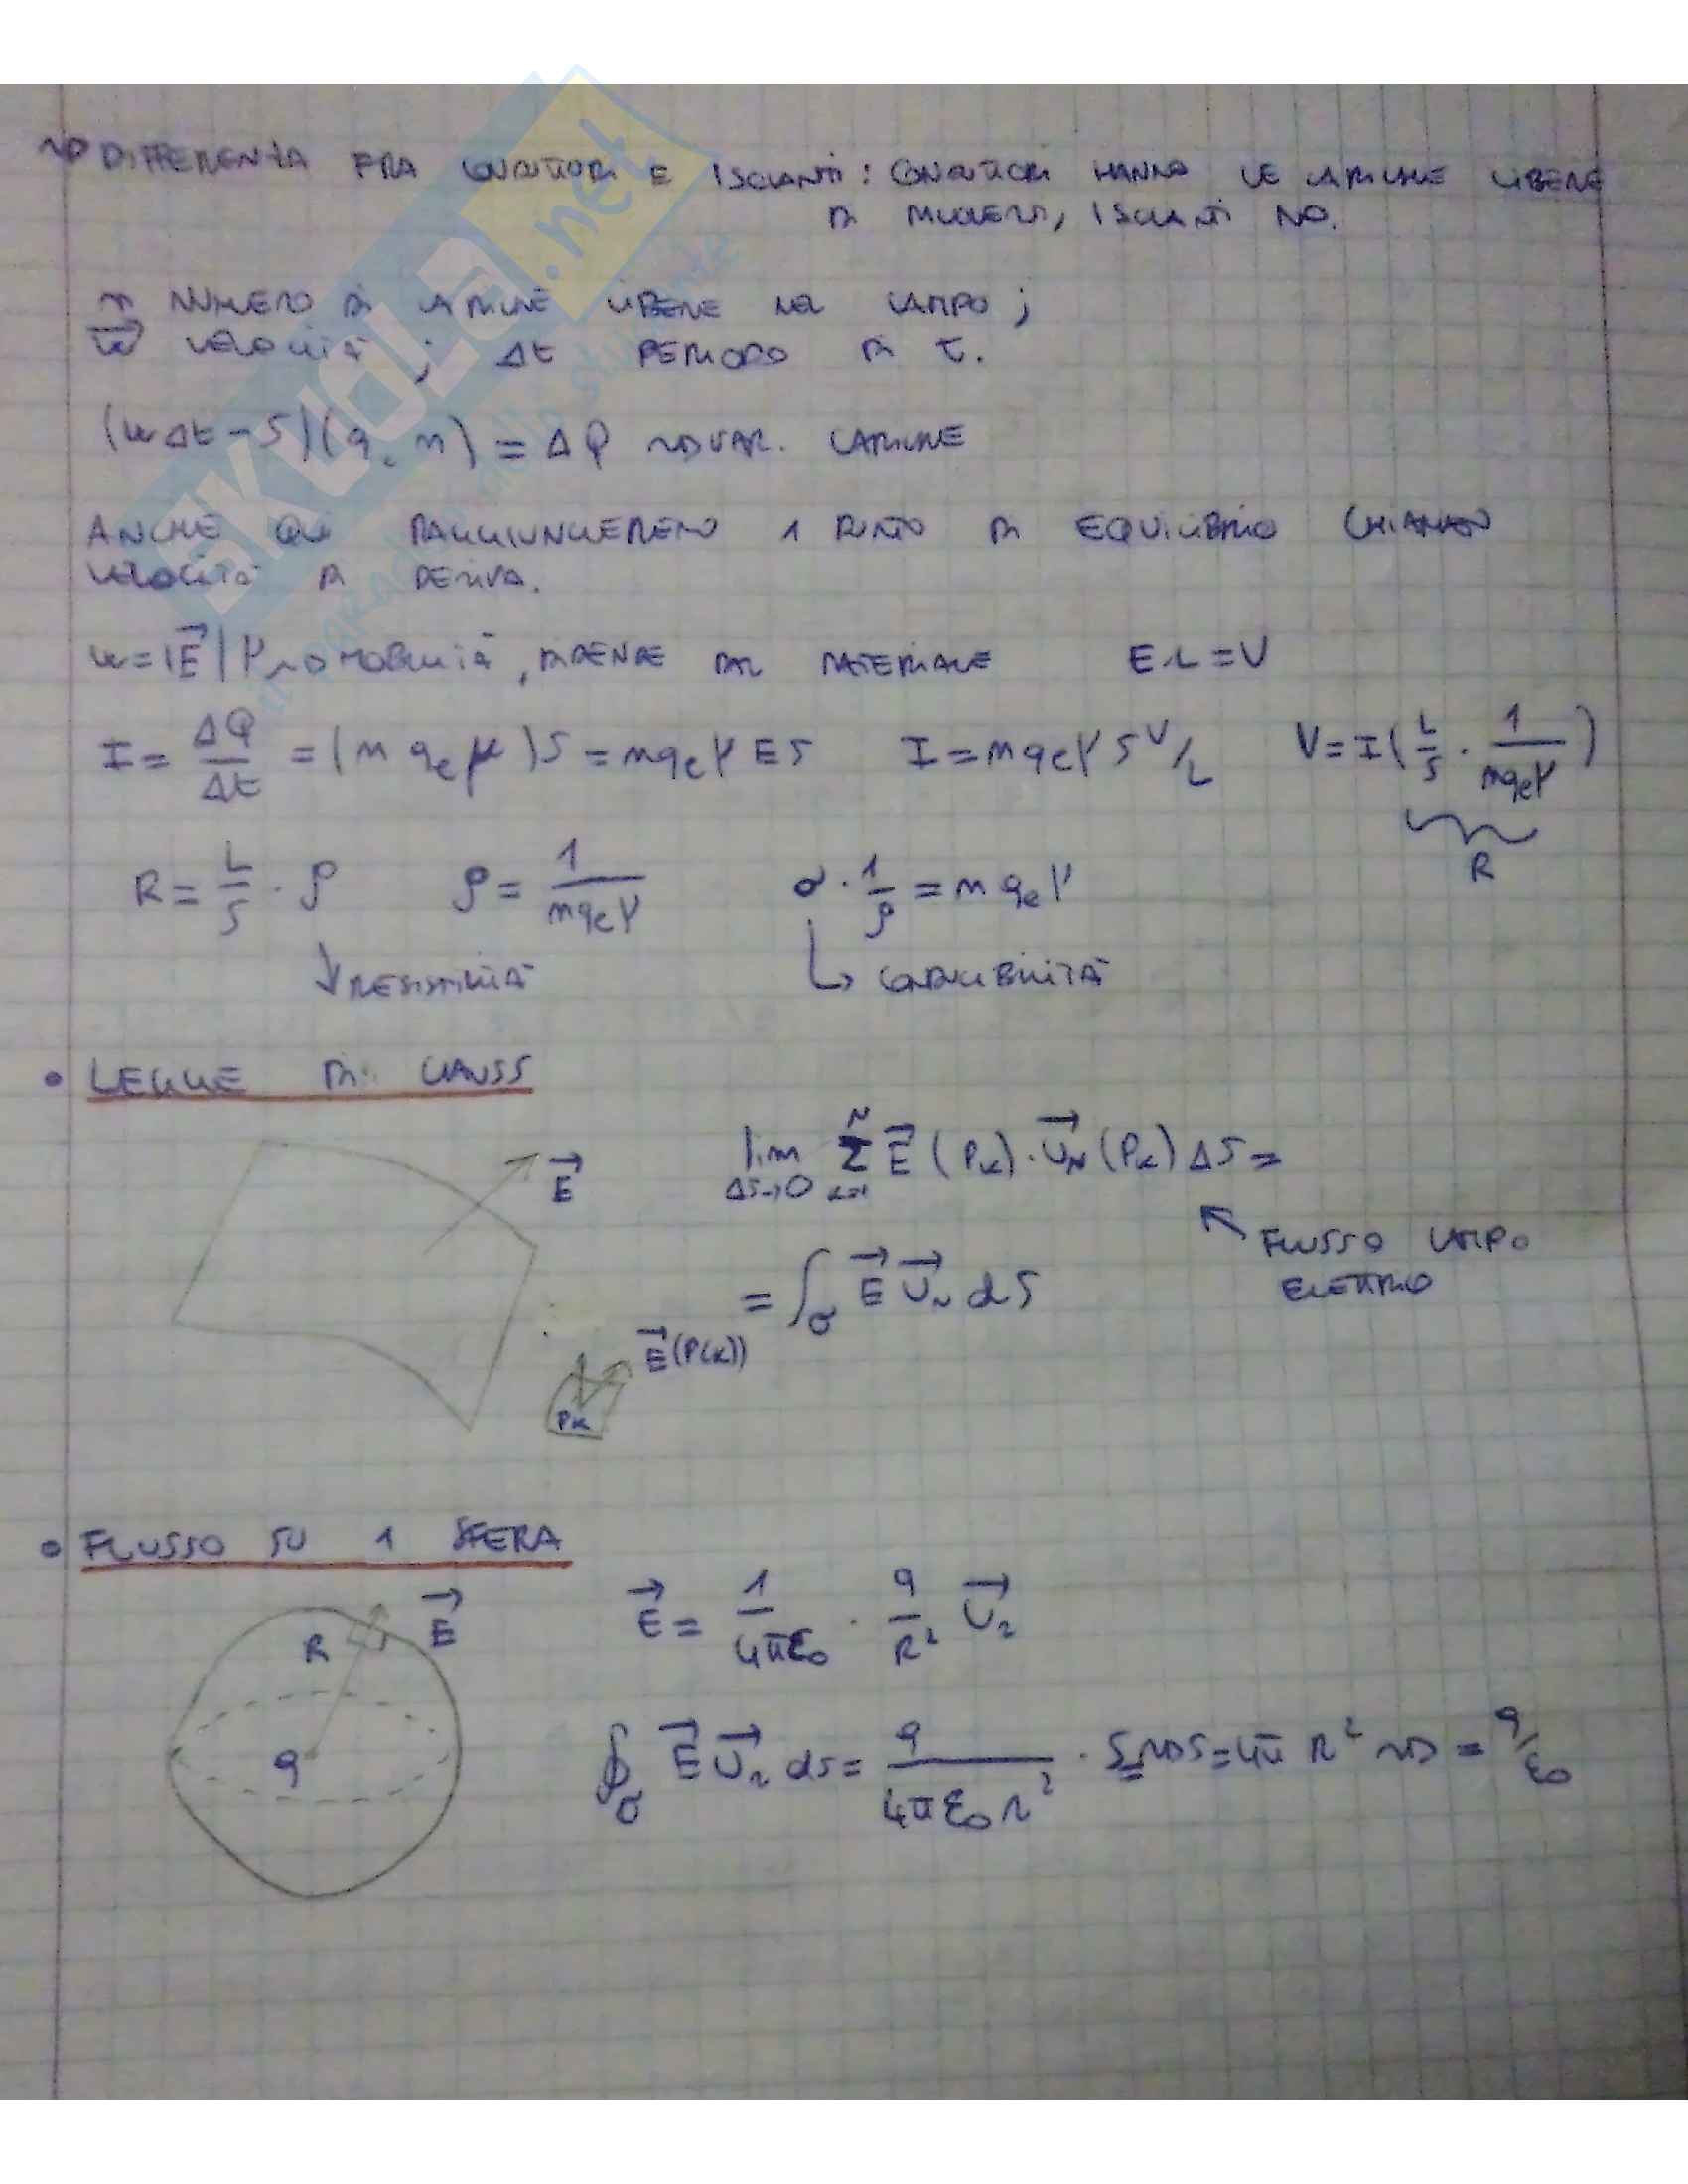 DIFFERENZA FRA CONDUTTORI E ISOLANTI: CONDUTTORI HANNO LE CARICHE LIBERE
DI MUOVERSI, ISOLANTI NO.
n NUMERO DI CARICHE LIBERE NEL CAMPO;
VELOCITÀ; Δt PERIODO DI t.
= ΔQ → VAR. CARICHE
ANCHE QUI RAGGIUNGEREMO 1 PUNTO DI EQUILIBRIO CHIAMATO
VELOCITÀ DI DERIVA.
w=|E⃗|μ → MOBILITÀ, DIPENDE DAL MATERIALE E·L=V
I = ΔQ/Δt = (n qe μ)S = nqeμES I = nqeμS V/L V = I(L/S · 1/nqeμ)
R
R = L/S · ρ ρ = 1/nqeμ σ · 1/ρ = n qe μ
↓ RESISTIVITÀ ↳ CONDUCIBILITÀ
• LEGGE DI GAUSS
E⃗ lim ΔS→0 Σ k=1 N E⃗(Pk)·U⃗N(Pk)ΔS =
FLUSSO CAMPO
ELETTRICO
= ∫σ E⃗ U⃗N dS
E⃗(P(K))
PK
• FLUSSO SU 1 SFERA
R E⃗ E⃗ = 1/4πε0 · q/R² U⃗r
q ∮σ E⃗ U⃗r ds = q/4πε0r² · S → S=4π R² → = q/ε0
SKUOLA.net